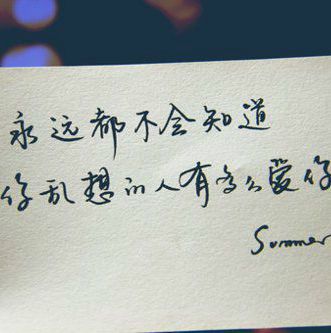 永远都不会知道
你乱想的人有多么爱你
Summer